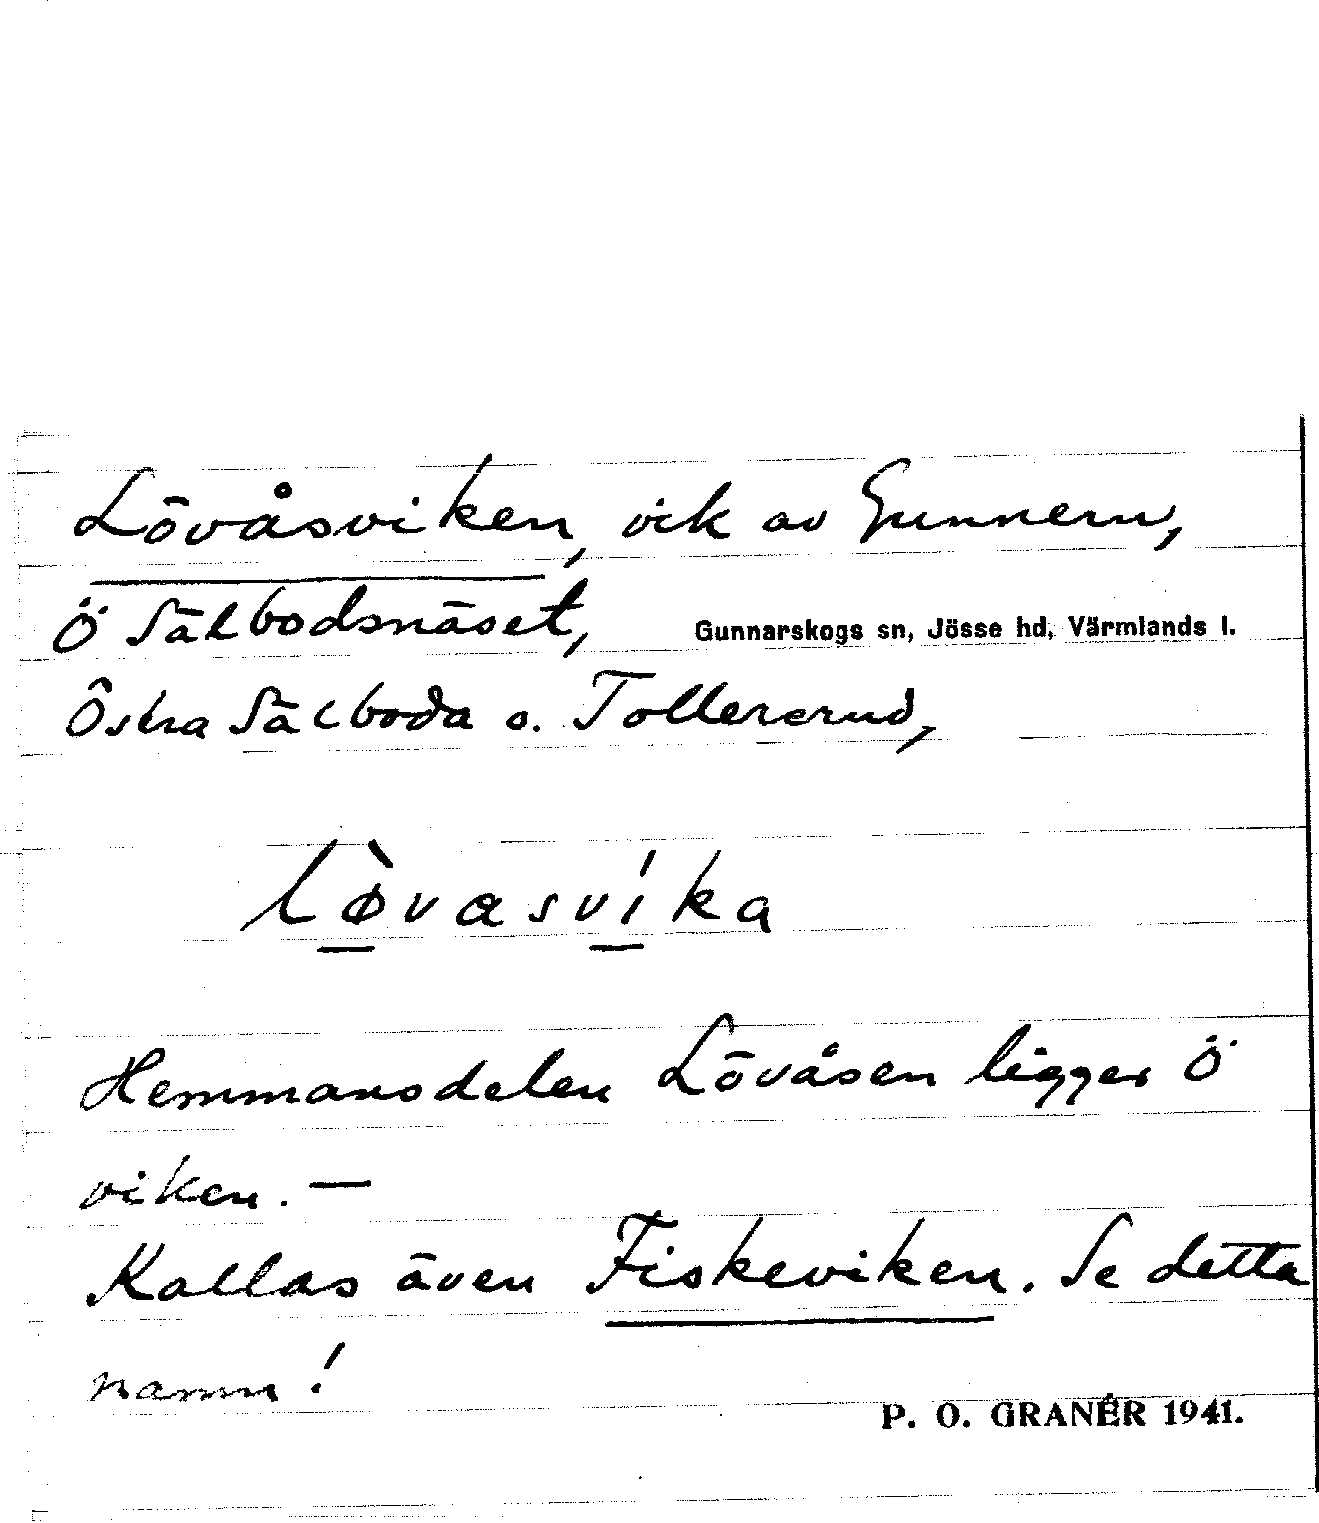 Lövåsviken, vik av Gunnern,
Ö Sälbodsnäset,
Gunnarskogs sn, Jösse hd, Värmlands l.
Östra Sälboda o. Tollererud,
lø̀vasvíka
Hemmansdelen Lövåsen ligger Ö
viken. —
Kallas även Fiskeviken. Se detta
namn!
P. O. GRANÉR 1941.